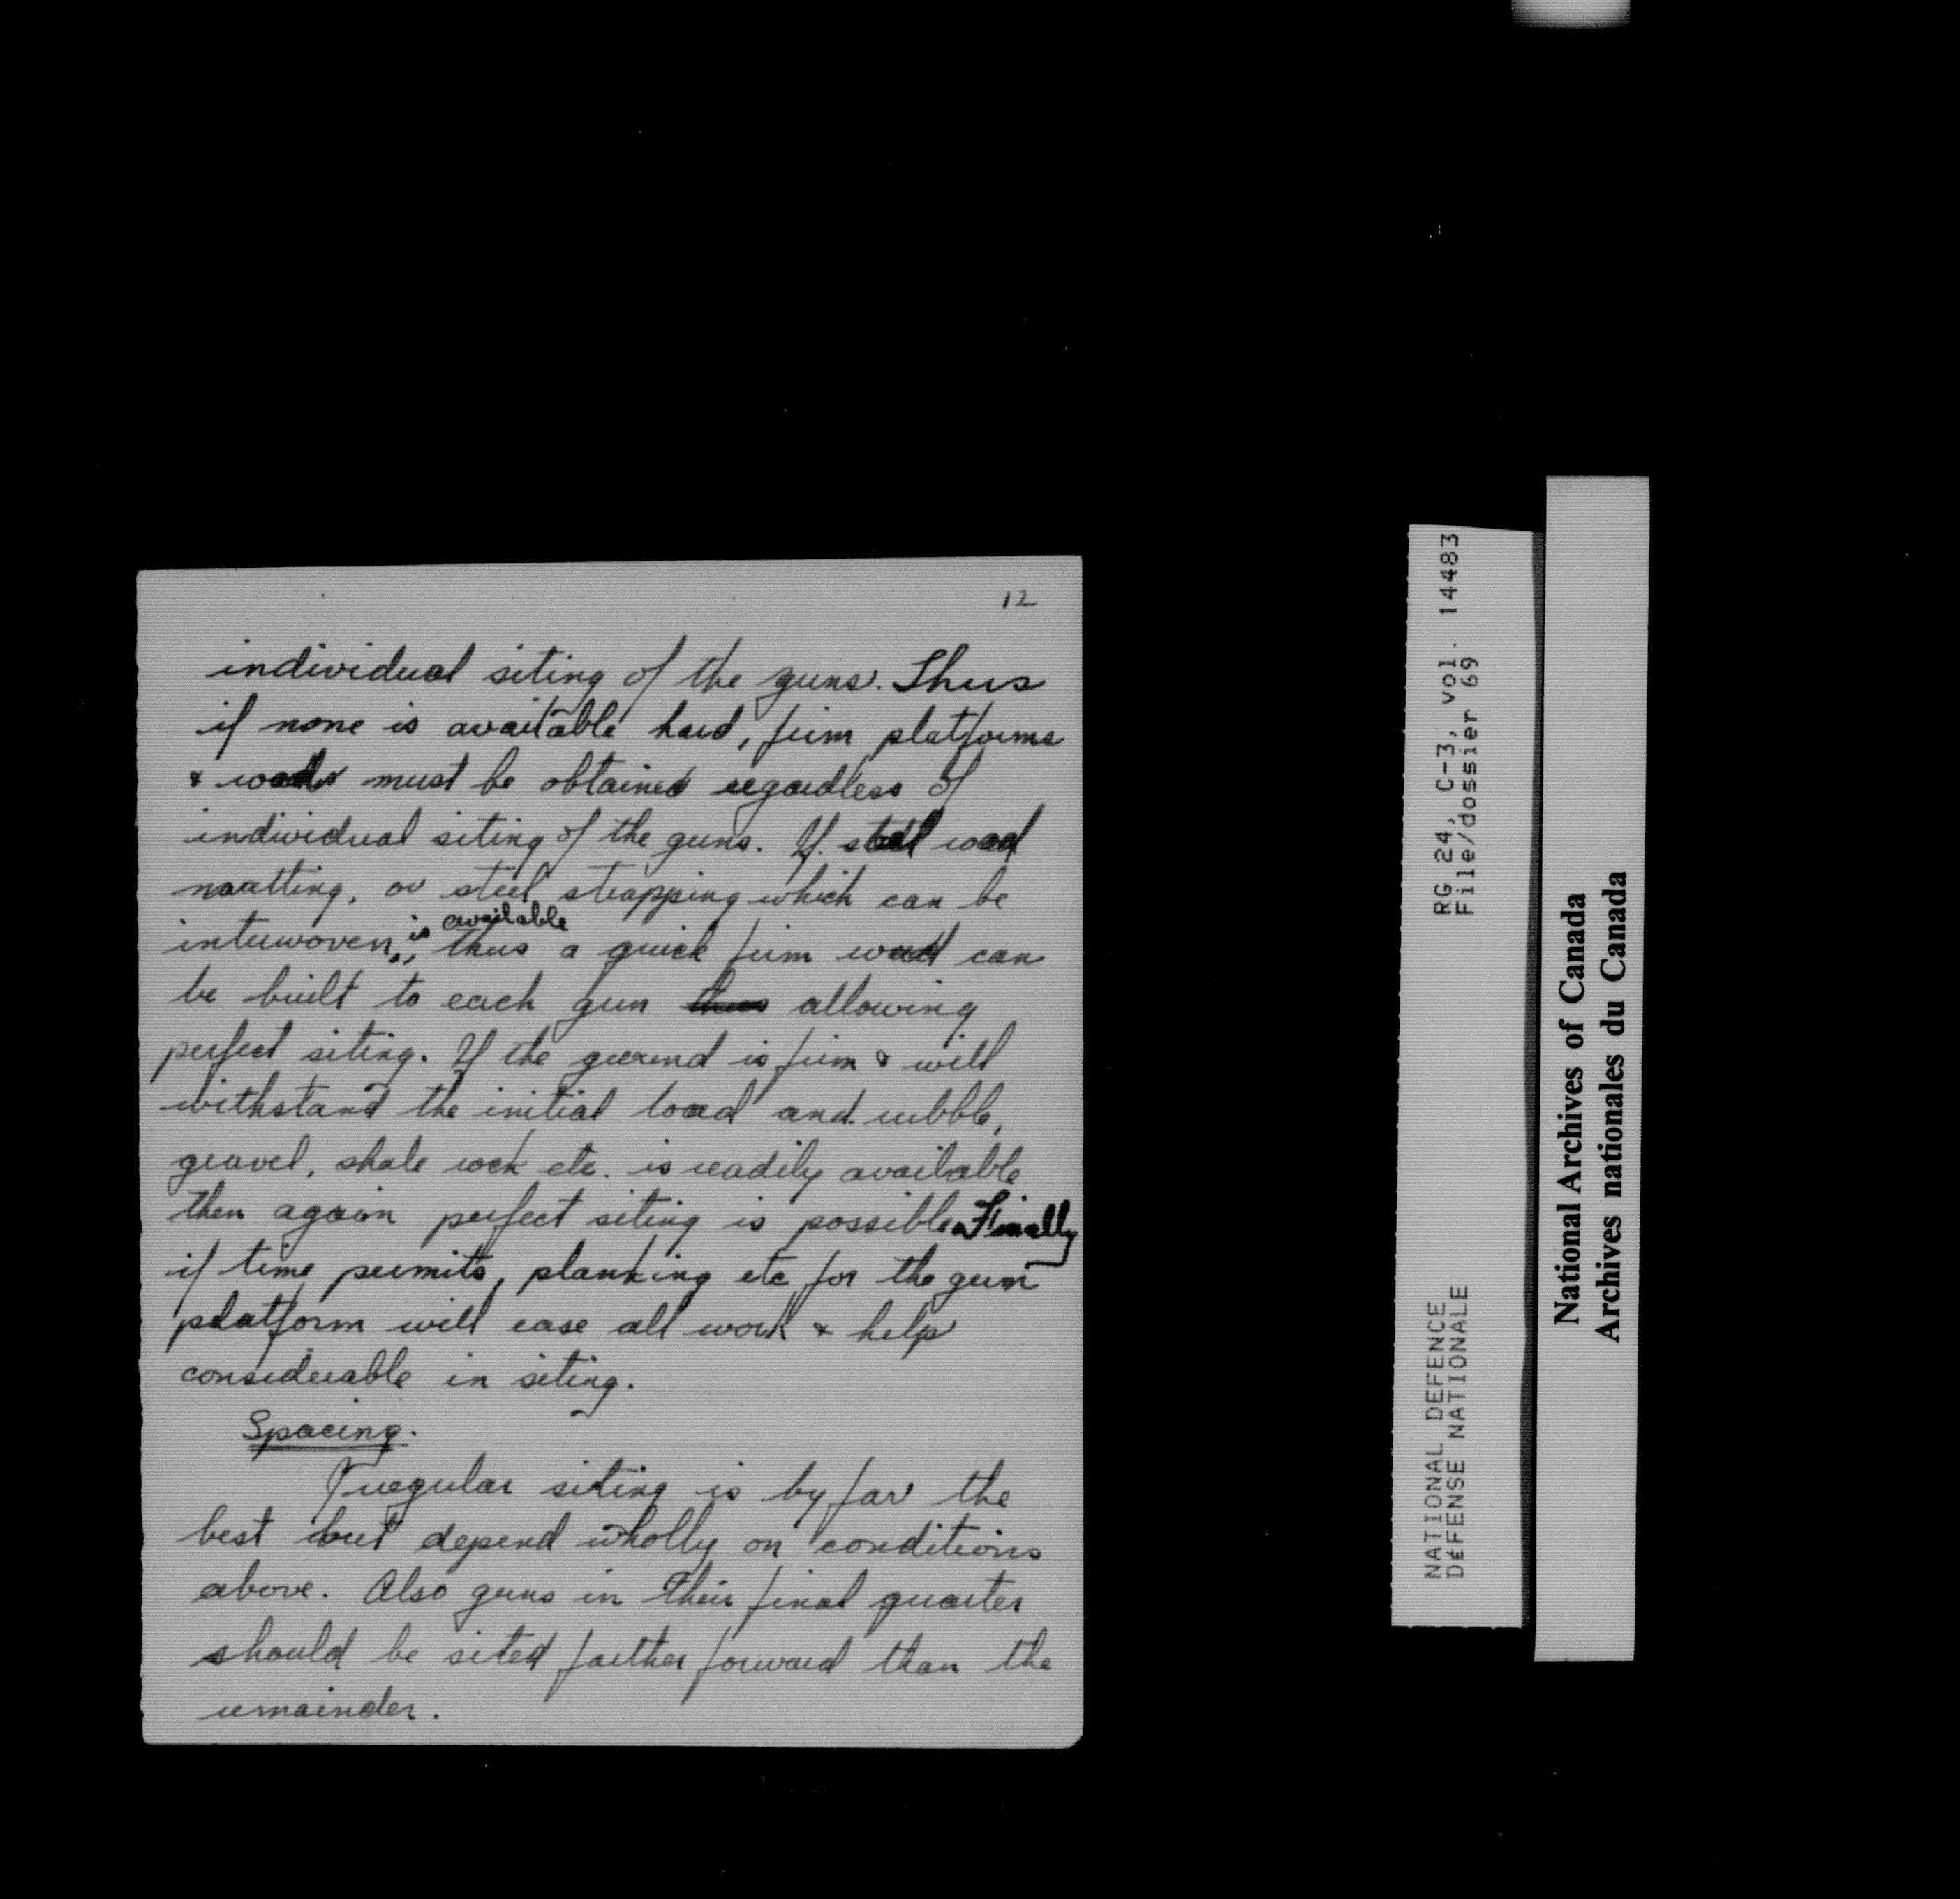 12
individual siting of the guns. Thus
if none is available hard, firm platforms
& roads must be obtained regardless of
individual siting of the guns. If steel road
matting, or steel strapping which can be
interwoven, is available, thus a quick firm road can
be built to each gun thus allowing
perfect siting. If the ground is firm & will
withstand the initial load and rubble,
gravel, shale rock etc. is readily available
then again perfect siting is possible. Finally
if time permits, planking etc for the gun
platform will ease all work & help
considerable in siting.
Spacing.
Irregular siting is by far the
best but depend wholly on conditions
above. Also guns in their final quarter
should be sited farther forward than the
remainder.
RG 24, C-3, vol. 14483
File/dossier 69
NATIONAL DEFENCE
DÉFENSE NATIONALE
National Archives of Canada
Archives nationales du Canada